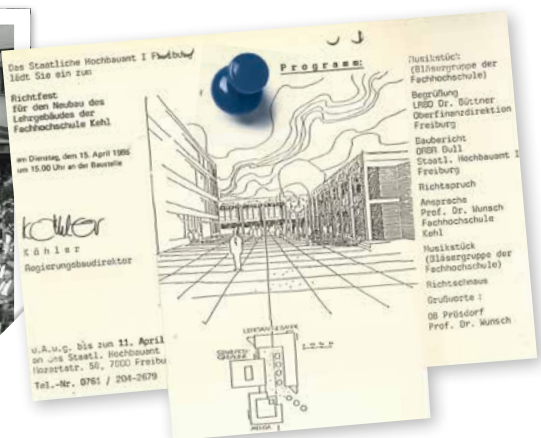 Das Staatliche Hochbauamt I Freiburg
lädt Sie ein zum
Richtfest
für den Neubau des
Lehrgebäudes der
Fachhochschule Kehl
am Dienstag, dem 15. April 1986
um 15.00 Uhr an der Baustelle
Kähler
Kähler
Regierungsbaudirektor
u.A.w.g. bis zum 11. April
an das Staatl. Hochbauamt
Mozartstr. 58, 7800 Freibu
Tel.-Nr. 0761 / 204-2679
Programm:
LEHRGEBÄUDE
MENSA
Musikstück
(Bläsergruppe der
Fachhochschule)
Begrüßung
LRBD Dr. Büttner
Oberfinanzdirektion
Freiburg
Baubericht
ORBR Dull
Staatl. Hochbauamt I
Freiburg
Richtspruch
Ansprache
Prof. Dr. Wunsch
Fachhochschule
Kehl
Musikstück
(Bläsergruppe der
Fachhochschule)
Richtschmaus
Grußworte :
OB Prösdorf
Prof. Dr. Wunsch